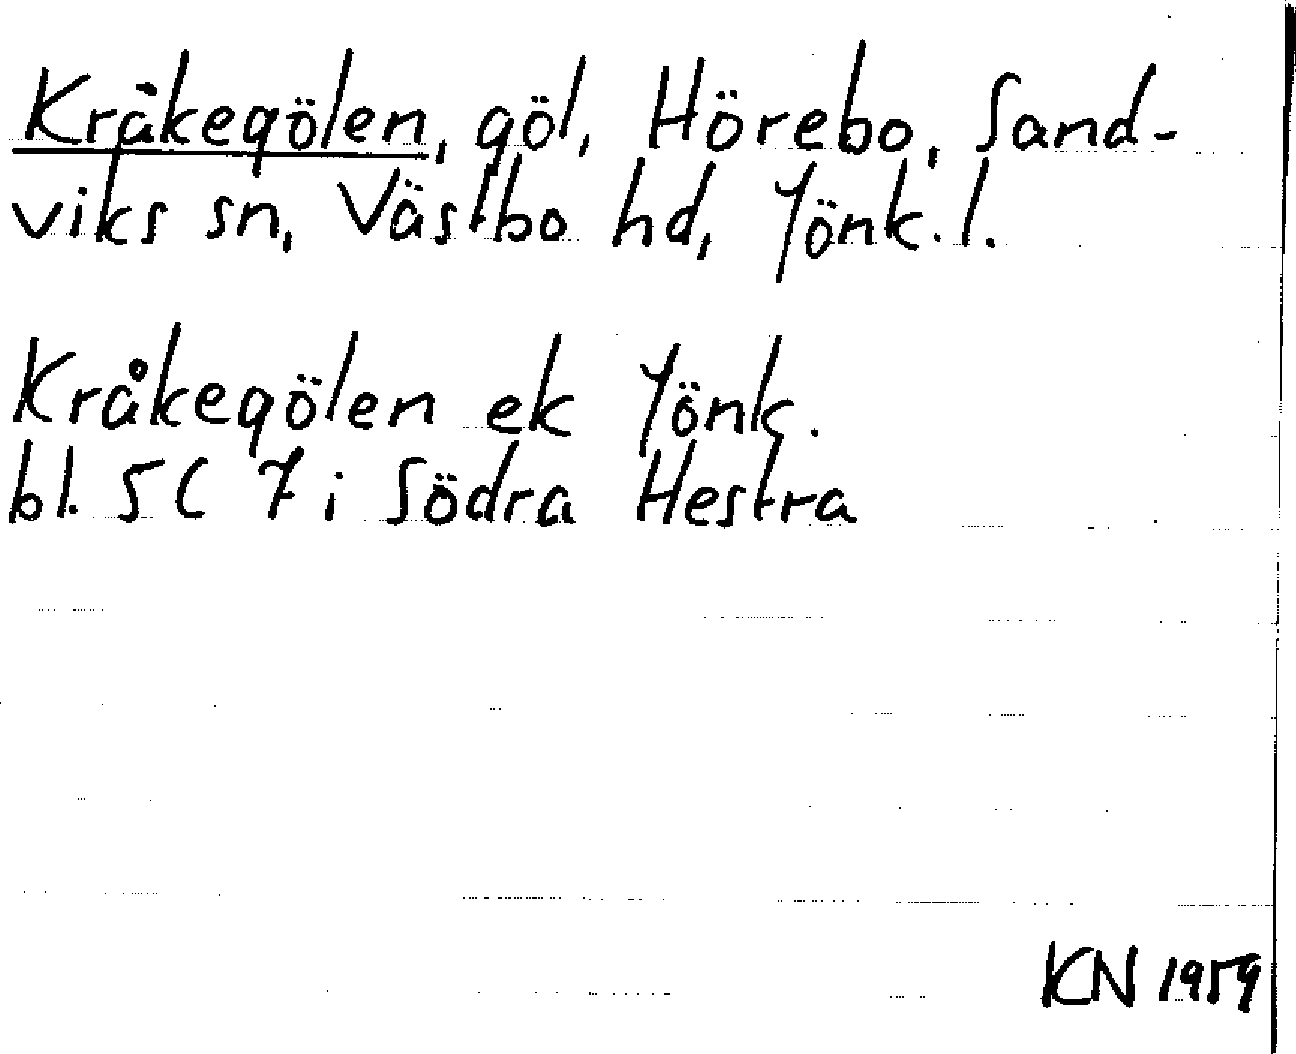 Kråkegölen, göl, Hörebo, Sand-
viks sn, Västbo hd, Jönk. l.
Kråkegölen ek Jönk.
bl. 5C 7 i Södra Hestra
KN 1959